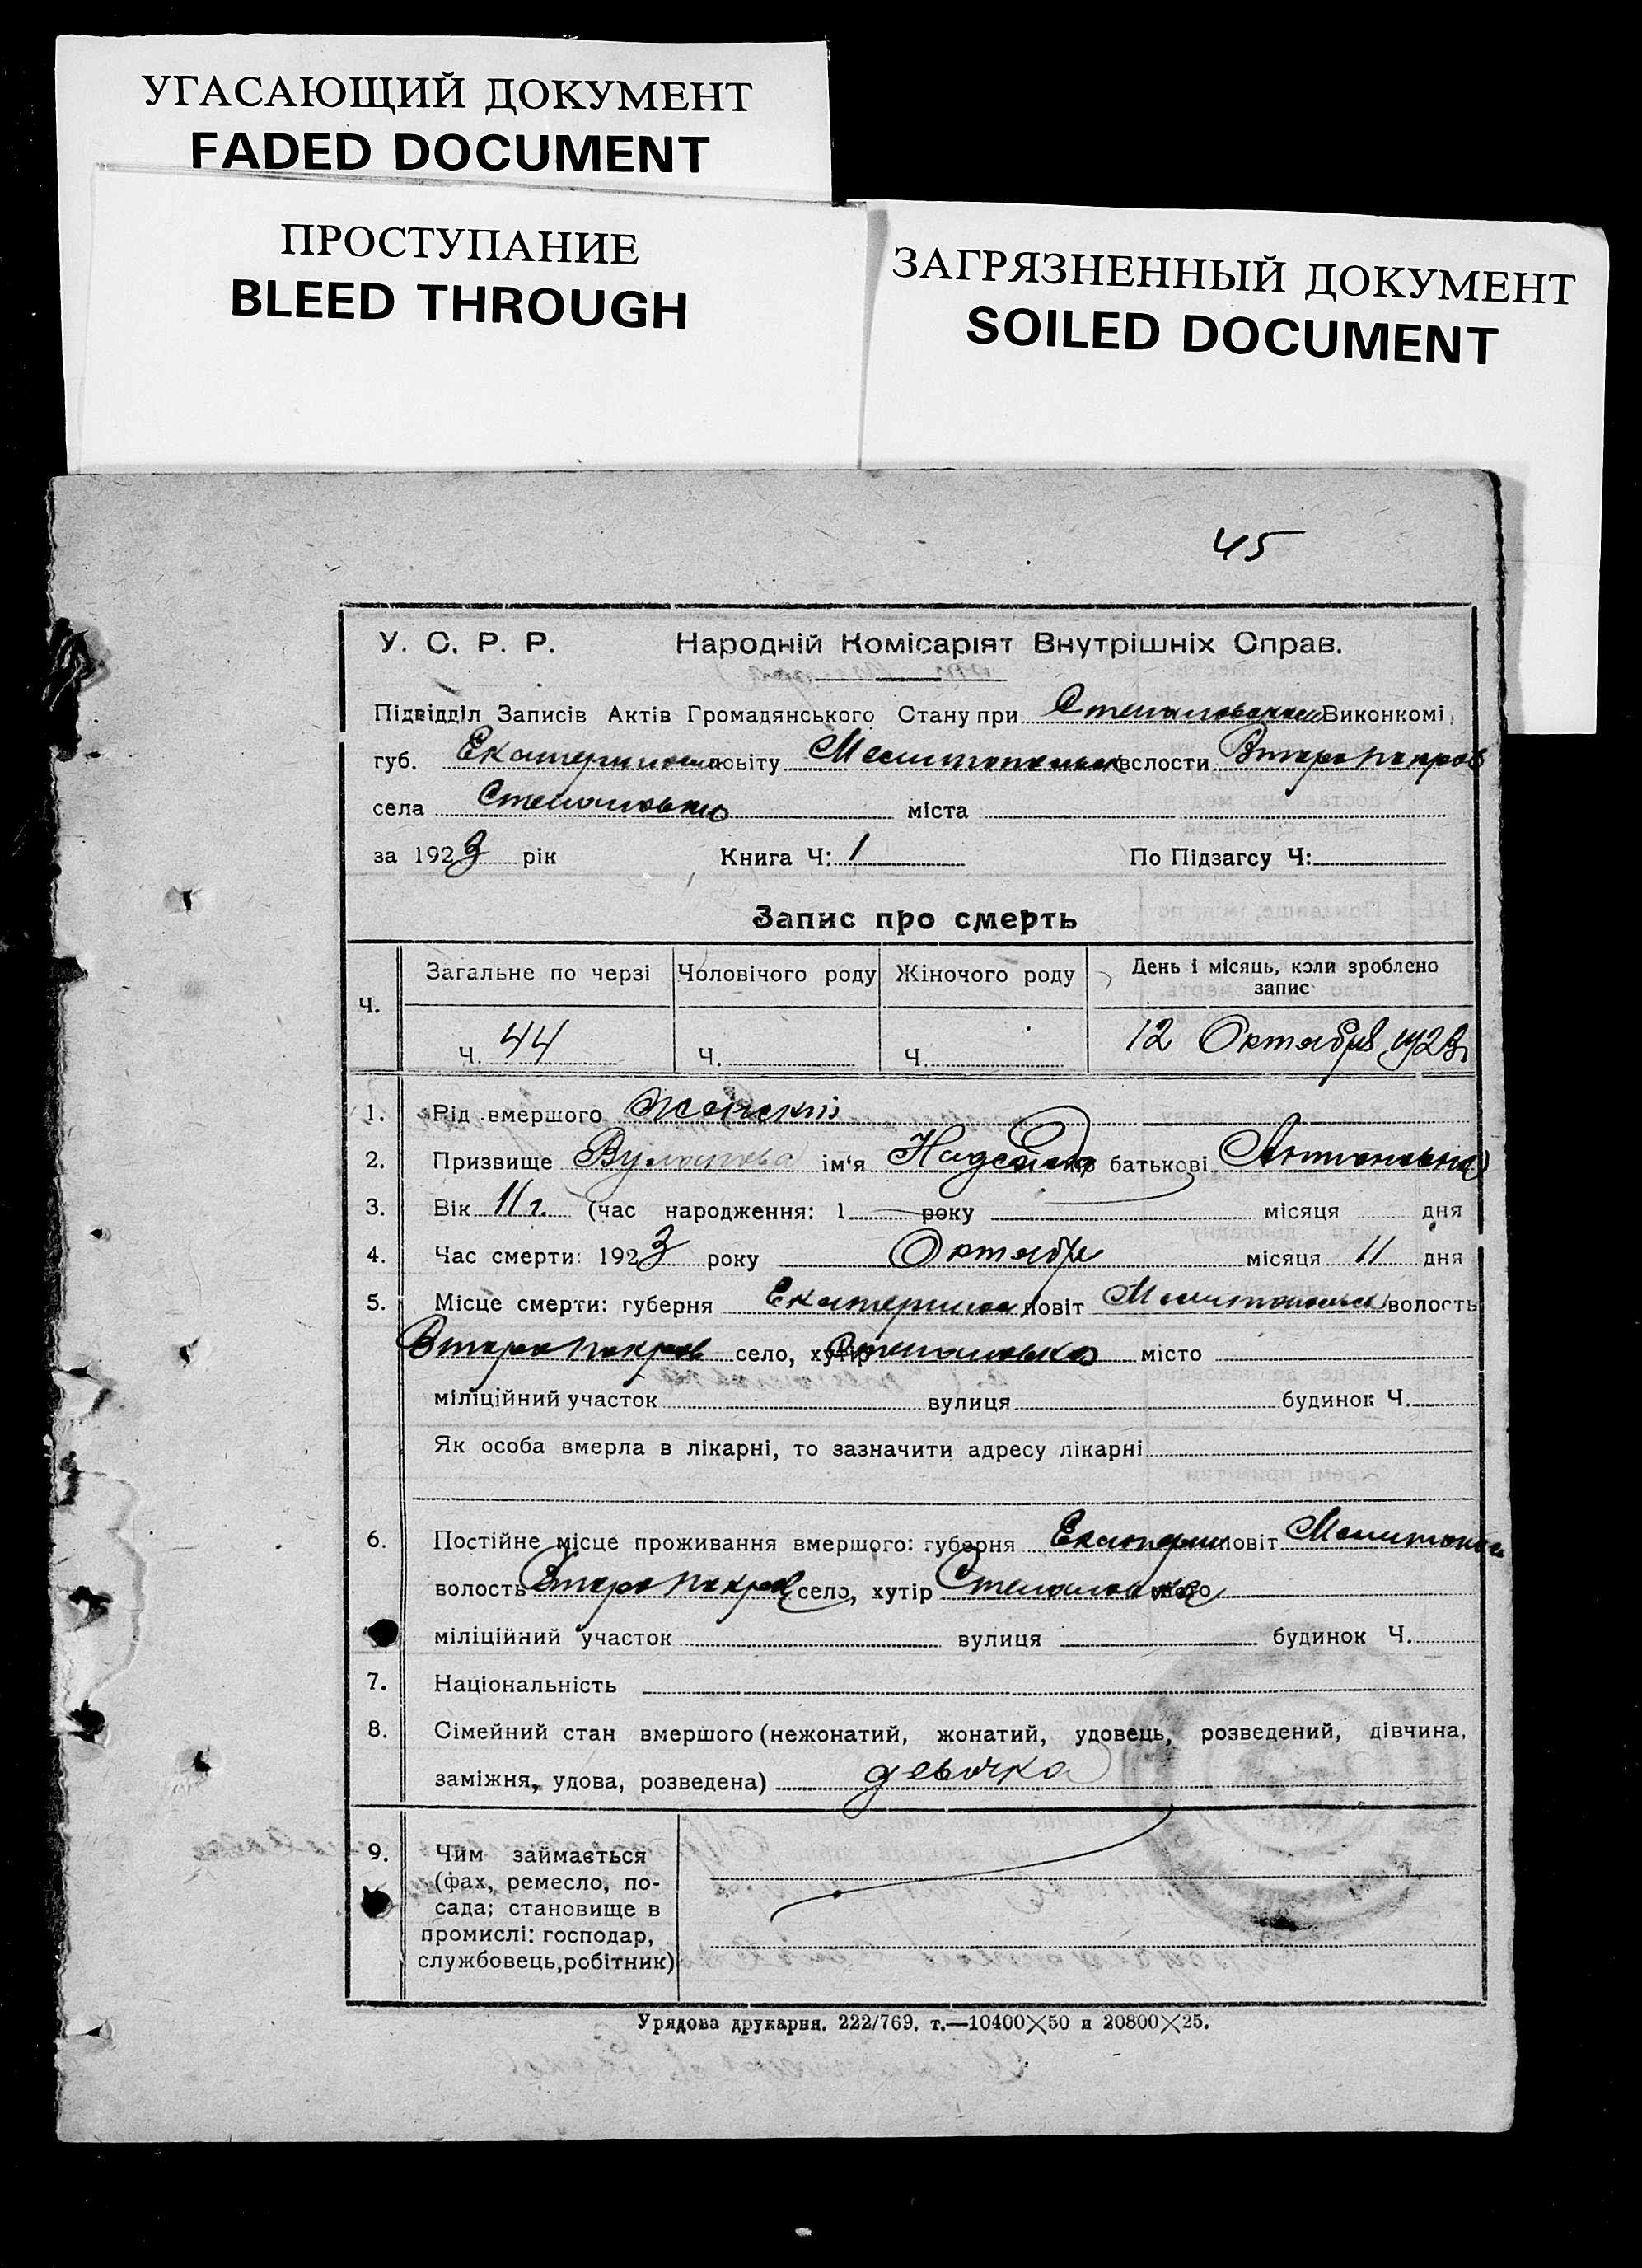 УГАСАЮЩИЙ ДОКУМЕНТ
FADED DOCUMENT
ПРОСТУПАНИЕ
BLEED THROUGH
ЗАГРЯЗНЕННЫЙ ДОКУМЕНТ
SOILED DOCUMENT
45
У. С. Р. Р. Народній Комісаріят Внутрішніх Справ.
Підвідділ Записів Актів Громадянського Стану при Виконкомі,
губ. Екатеринос повіту волости Второпокров
села Степановки міста
за 1923 рік Книга Ч: 1 По Підзагсу Ч:
Запис про смерть
Ч. Загальне по черзі Чоловічого роду Жіночого роду День і місяць, коли зроблено
запис
Ч. 44 Ч. Ч. 12 Октября 1923
1. Рід вмершого женский
2. Призвище ім'я Надежда по батькові Антоновна
3. Вік 11 г. (час народження: 1 року місяця дня
4. Час смерти: 1923 року Октября місяця 11 дня
5. Місце смерти: губерня Екатеринос повіт Мелитопольск волость
Второпокров село, хутір Степановка місто
міліційний участок вулиця будинок Ч.
Як особа вмерла в лікарні, то зазначити адресу лікарні
6. Постійне місце проживання вмершого: губерня Екатерин повіт Мелитопол
волость Второпокров село, хутір Степановка місто
міліційний участок вулиця будинок Ч.
7. Національність
8. Сімейний стан вмершого (нежонатий, жонатий, удовець, розведений, дівчина,
заміжня, удова, розведена) девочка
9. Чим займається
(фах, ремесло, по-
сада; становище в
промислі: господар,
службовець, робітник)
Урядова друкарня. 222/769. т.—10400×50 и 20800×25.